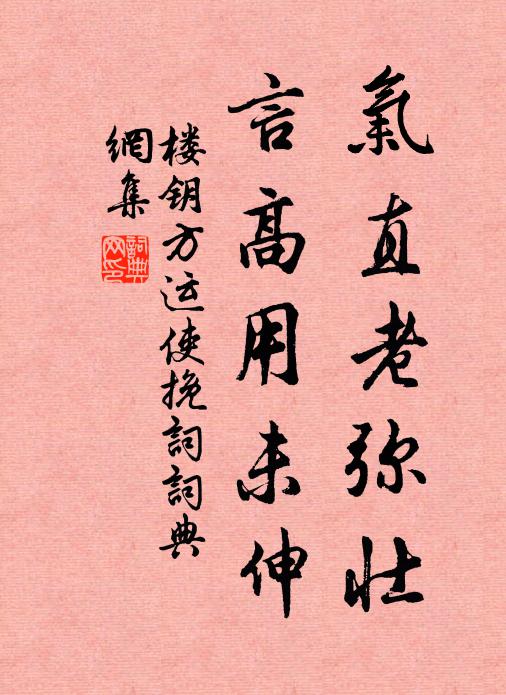 氣直老弥壮
言高用未伸
楼钥方运使挽詞詞典
網集
詞典
网印